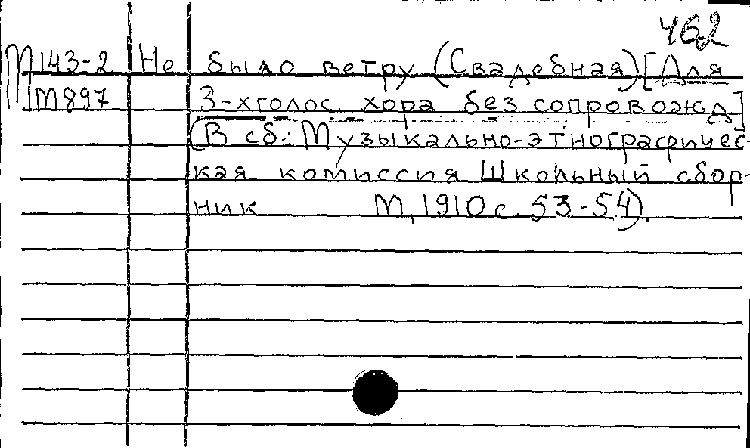 462
М143-2 Не было ветру (Свадебная) [Для
М897 3-хголос. хора без сопровожд.]
(В сб.: Музыкально-этнографичес-
кая комиссия Школьный сбор-
ник М, 1910 с. 53-54).